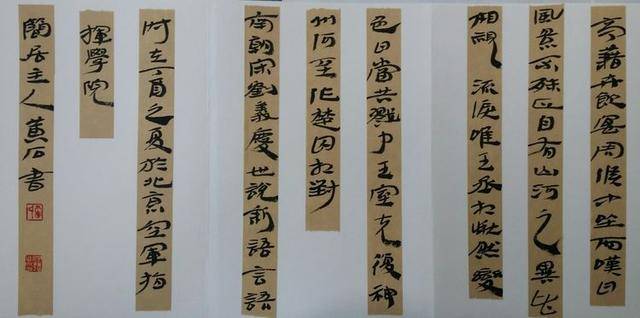 亭藉卉飲宴周侯中坐而嘆曰
風景不殊正自有山河之異皆
相視流淚唯王丞相愀然變
色曰當共戮力王室克復神
州何至作楚囚相對
南朝宋劉義慶世說新語言語
时在丁酉之夏於北京空軍指
揮學院
簡居主人黃石書